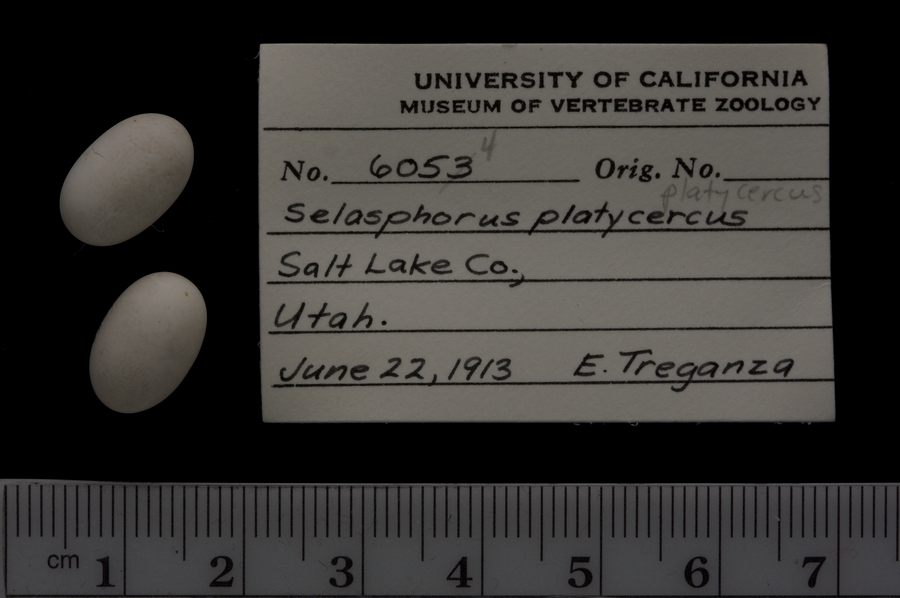 UNIVERSITY OF CALIFORNIA
MUSEUM OF VERTEBRATE ZOOLOGY
No. 6053 4 Orig. No.
platycercus
Selasphorus platycercus
Salt Lake Co.,
Utah.
June 22, 1913 E. Treganza
cm 1 2 3 4 5 6 7